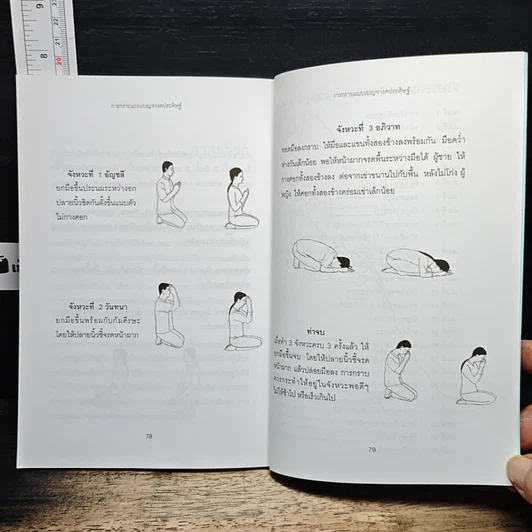 9
8
20
การกราบแบบเบญจางคประดิษฐ์
จังหวะที่ 1 อัญชลี
ยกมือขึ้นประนมระหว่างอก
ปลายนิ้วชิดกันตั้งขึ้นแนบตัว
ไม่กางศอก
จังหวะที่ 2 วันทนา
ยกมือขึ้นพร้อมกับก้มศีรษะ
โดยให้ปลายนิ้วชี้จรดหน้าผาก
78
การกราบแบบเบญจางคประดิษฐ์
จังหวะที่ 3 อภิวาท
ทอดมือลงกราบ ให้มือและแขนทั้งสองข้างลงพร้อมกัน มือคว่ำ
ห่างกันเล็กน้อย พอให้หน้าผากจรดพื้นระหว่างมือได้ ผู้ชาย ให้
กางศอกทั้งสองข้างลง ต่อจากเข่าขนานไปกับพื้น หลังไม่โก่ง ผู้
หญิง ให้ศอกทั้งสองข้างคร่อมเข่าเล็กน้อย
ท่าจบ
เมื่อทำ 3 จังหวะครบ 3 ครั้งแล้ว ให้
ยกมือขึ้นจบ โดยให้ปลายนิ้วชี้จรด
หน้าผาก แล้วปล่อยมือลง การกราบ
ควรกระทำให้อยู่ในจังหวะพอดีๆ
ไม่ให้ช้าไป หรือเร็วเกินไป
79